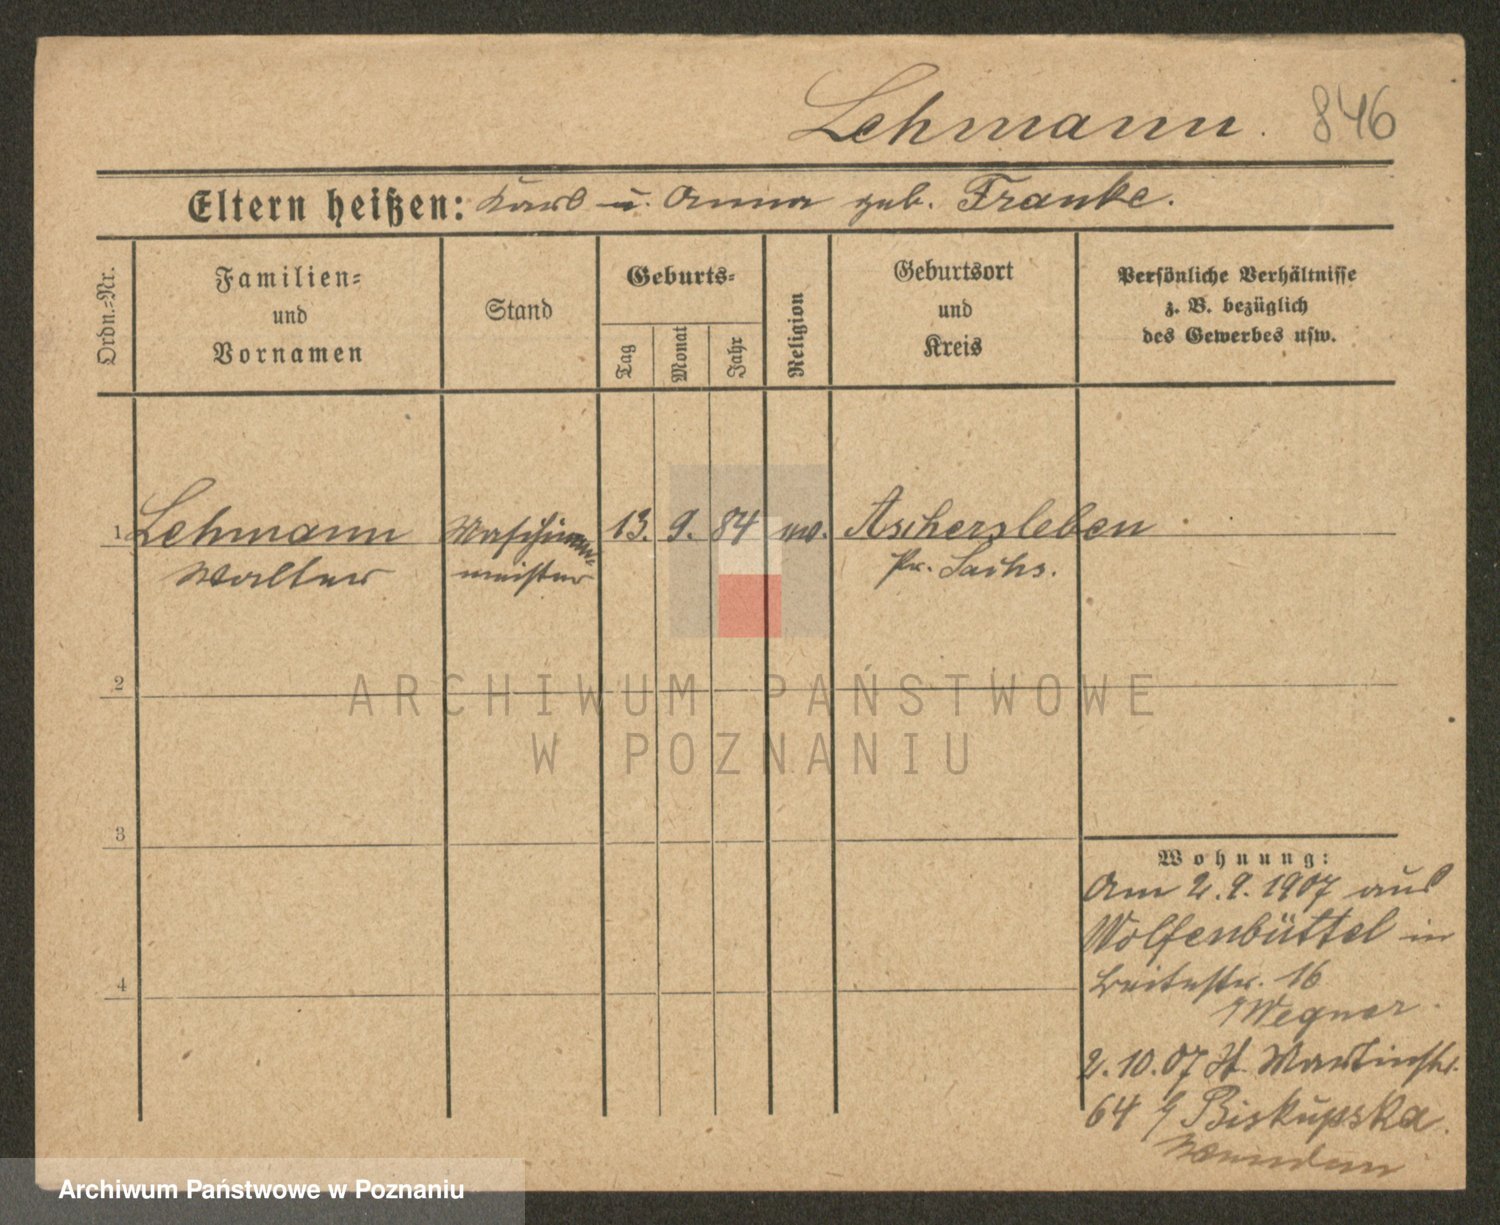 Lehmann. 846
Eltern heißen: Karl u. Anna geb. Franke.
Ordn.-Nr.
Familien-
und
Vornamen
Stand
Geburts-
Tag
Monat
Jahr
Religion
Geburtsort
und
Kreis
Persönliche Verhältnisse
z. B. bezüglich
des Gewerbes usw.
1 Lehmann Maschinen- 13. 9. 84 ev. Aschersleben
Walter meister Pr. Sachs.
2
3
4
Wohnung:
Am 2.9.1907 aus
Wolfenbüttel in
Breitestr. 16
Wegner.
2.10.07 St. Martinstr.
64 Biskupska.
Wenden
ARCHIWUM PAŃSTWOWE
W POZNANIU
Archiwum Państwowe w Poznaniu